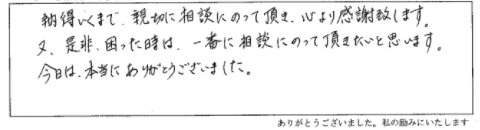 納得いくまで、親切に相談にのって頂き、心より感謝致します。
又、是非、困った時は、一番に相談にのって頂きたいと思います。
今日は、本当にありがとうございました。
ありがとうございました。私の励みにいたします